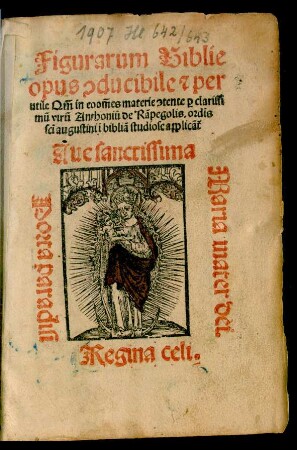 1907 He 642/643
Figurarum Biblie
opus ↄducibile ⁊ per
utile Qm̄ in eoom̄es materie ↄtente ꝑ clarissi
mū virū Anthoniū de Rāpegolis, ordis
sc̄i augustini i bibliā studiose applicat̄
Aue sanctissima
Maria mater dei
Regina celi.
Porta paradisi